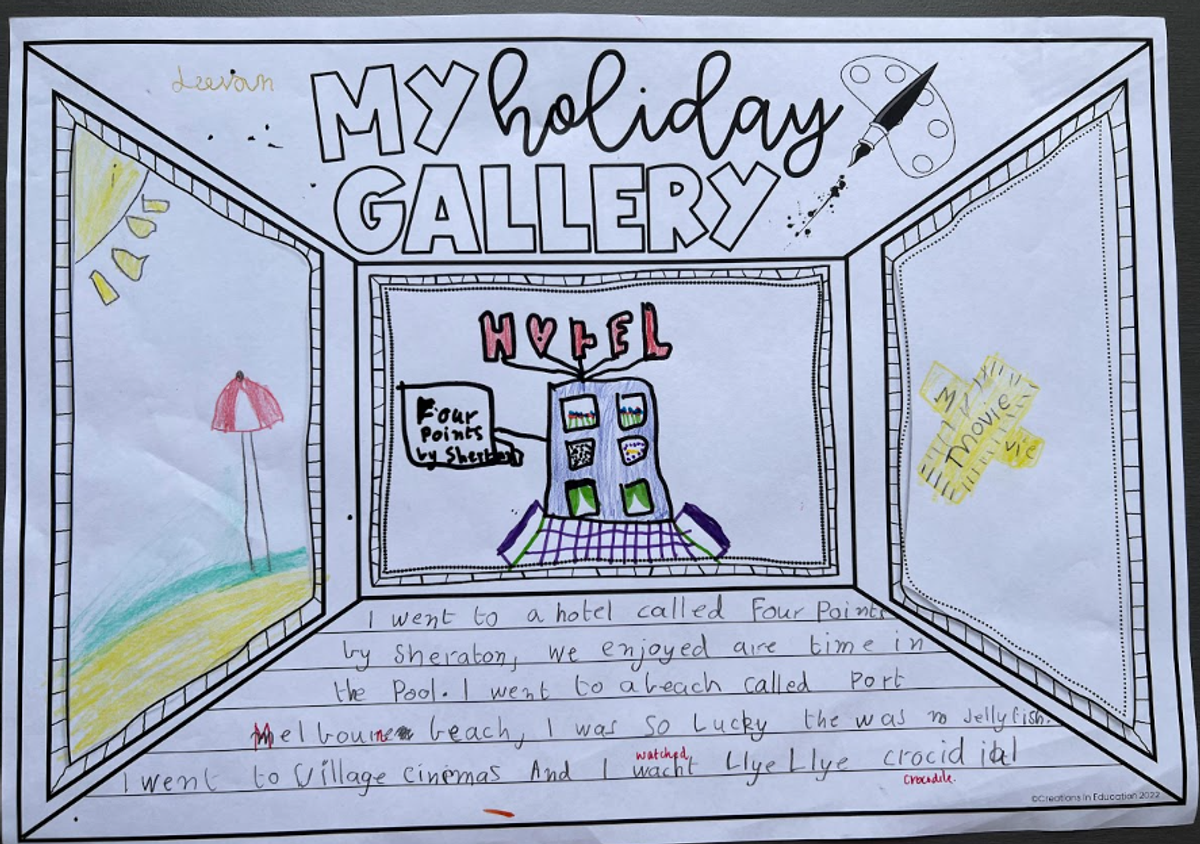 Leevan
MY holiday
GALLERY
HOTEL
Four
Points
by Sherton
MY
movie
vie
I went to a hotel called Four Points
by Sheraton, we enjoyed are time in
the Pool. I went to a beach called Port
Melbourne beach, I was so Lucky the was no Jellyfish.
watched
I went to Village cinemas And I wacht Llye Llye crocid ial
crocodile.
©Creations In Education 2022